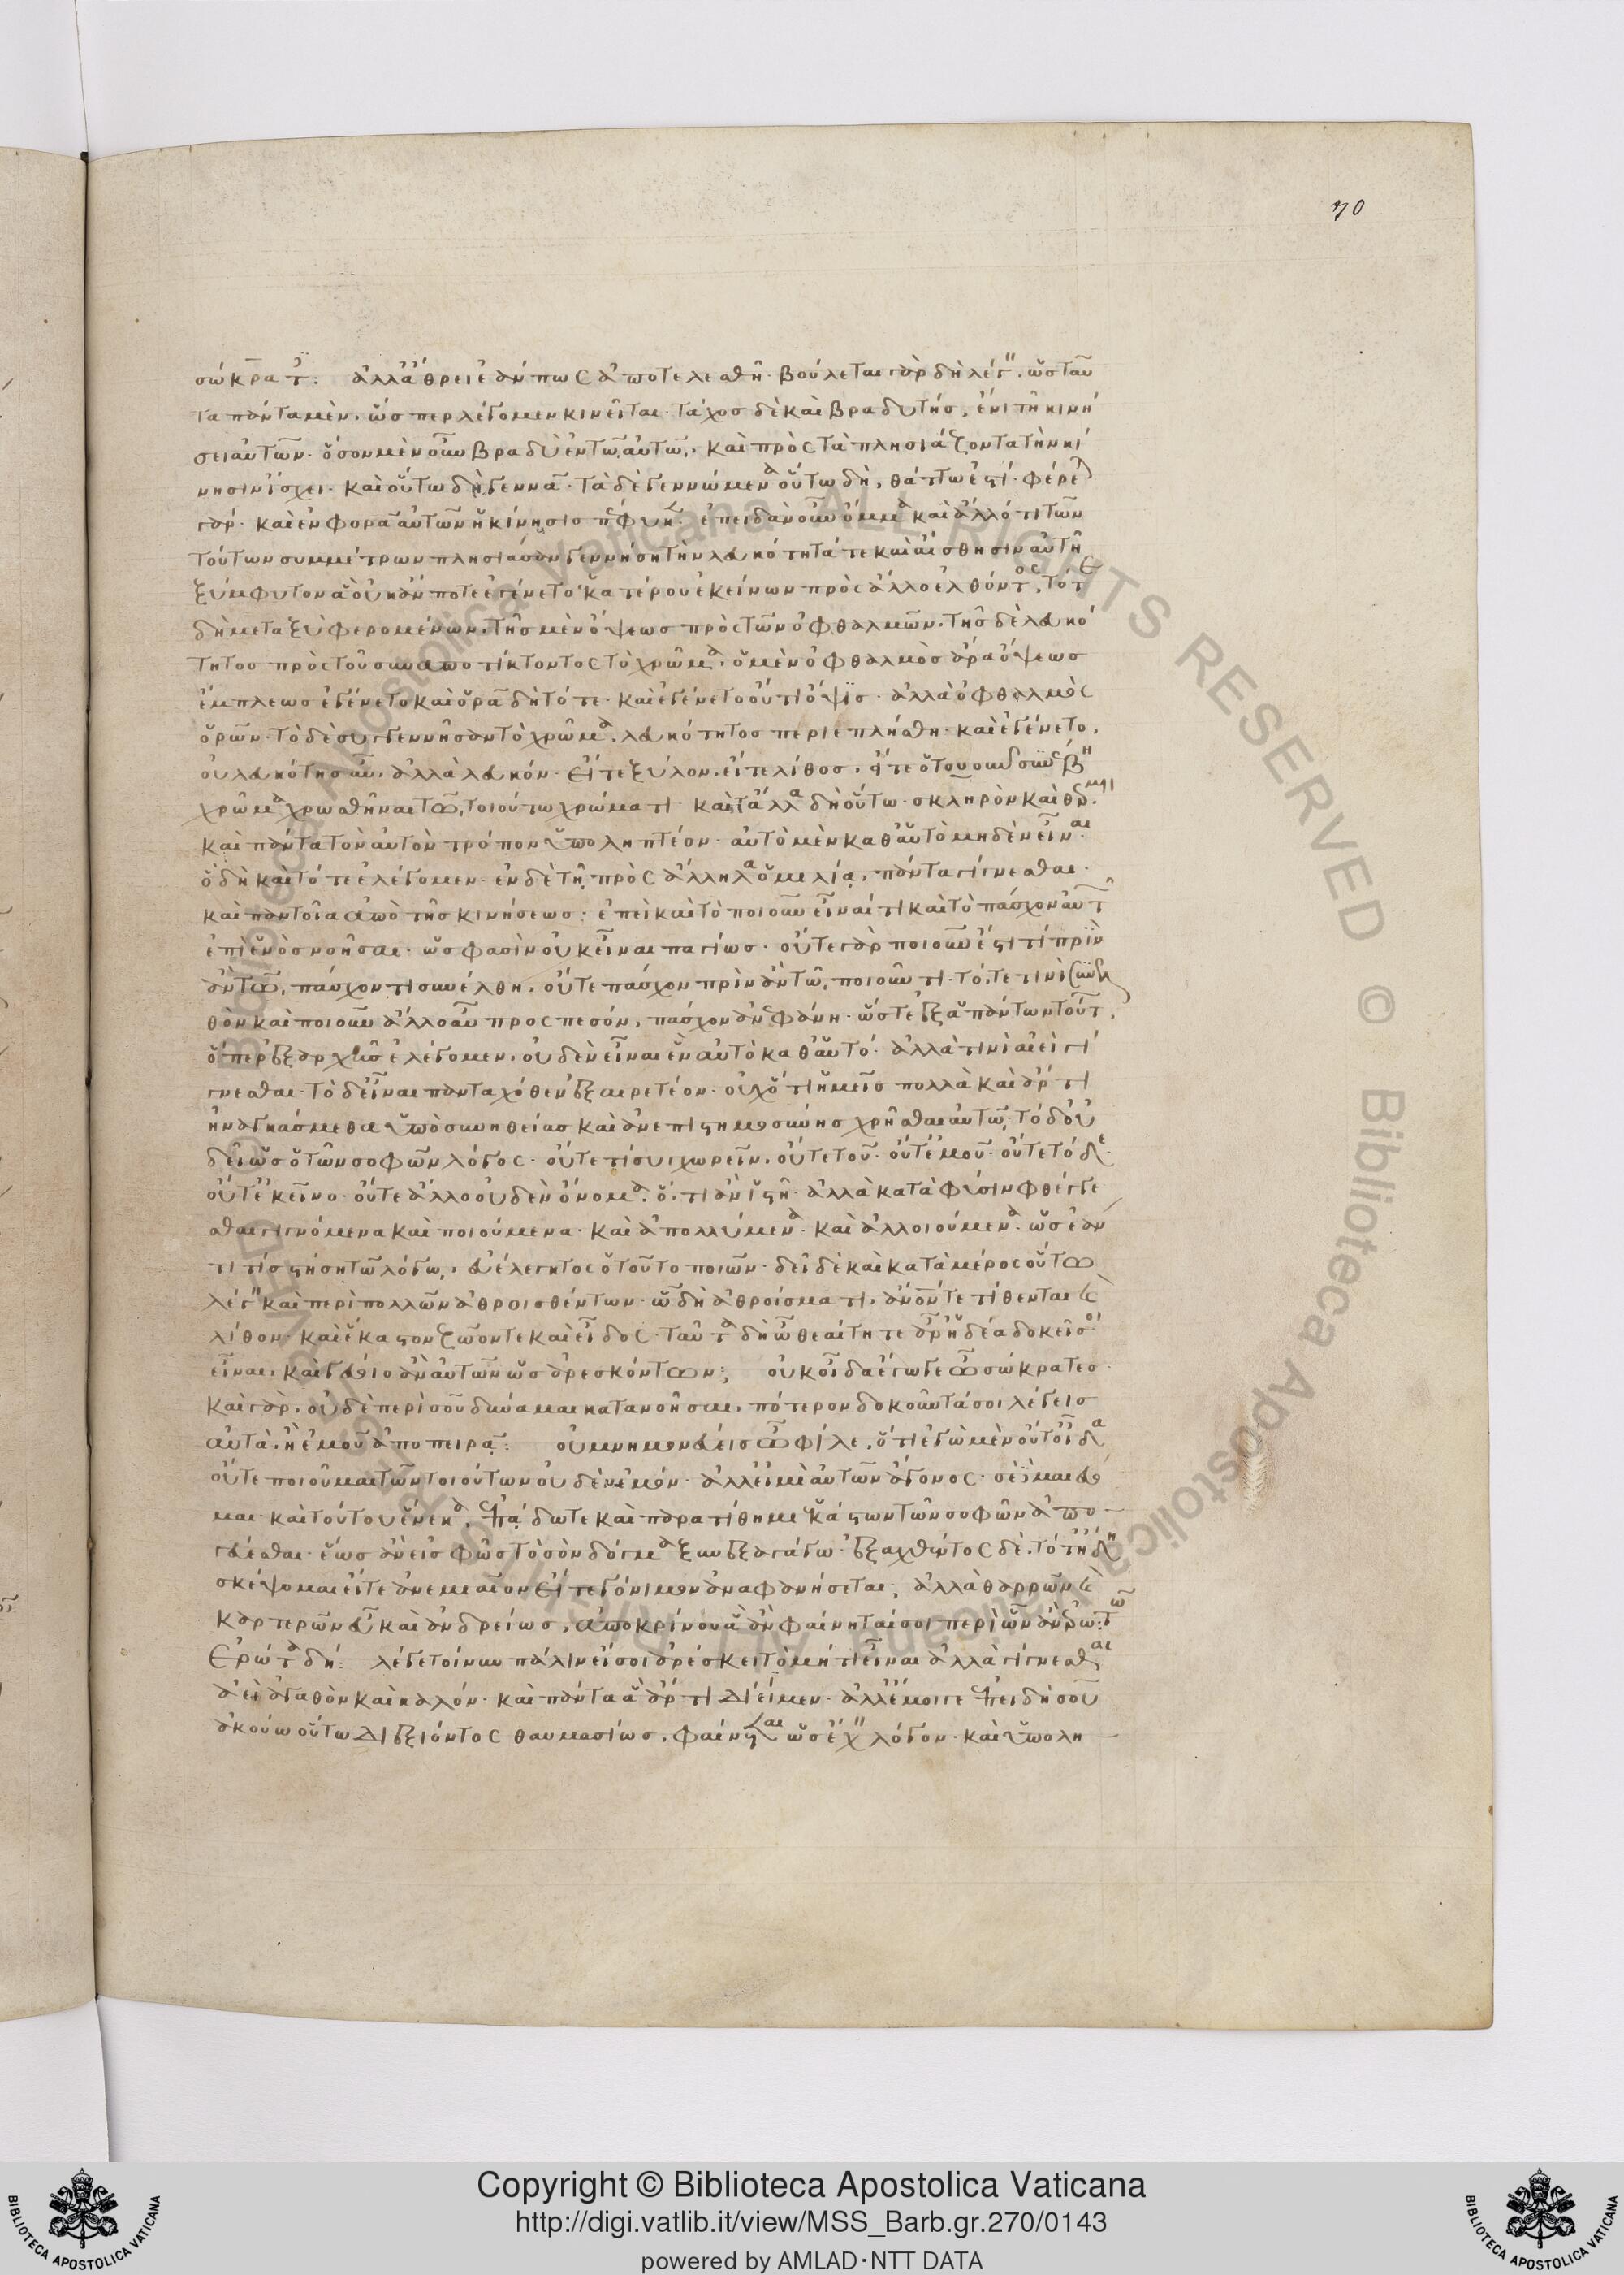 70
σώκρατ: ἀλλ' ἄθρει ἐάν πως ἀποτελεσθῆ· βούλεται γὰρ δὴ λέγ, ὡς ταῦ
τα πάντα μὲν, ὥσπερ λέγομεν κινεῖται· τάχος δὲ καὶ βραδυτὴς, ἔνι τῆ κινή
σει αὐτῶν· ὅσον μὲν οὖν βραδὺ ἐν τῷ αὐτῷ, καὶ πρὸς τὰ πλησιάζοντα τὴν κί
νησιν ἴσχει· καὶ οὕτω δὴ γεννᾶ· τὰ δὲ γεννώμενα οὕτω δὴ, θάττω ἐστί· φέρε
γάρ· καὶ ἐν φορᾶ αὐτῶν ἡ κίνησις πέφυκ· ἐπειδὰν οὖν ὄμμα καὶ ἄλλό τι τῶν
τούτων συμμέτρων πλησιάσαν γεννήση τὴν λευκότητά τε καὶ αἴσθησιν αὐτῆ
ξύμφυτον ἃ οὐκ ἄν ποτε ἐγένετο ἑκατέρου ἐκείνων πρὸς ἄλλο ἐλθόντος, τότε
δὴ μεταξὺ φερομένων, τῆς μὲν ὄψεως πρὸς τῶν ὀφθαλμῶν, τῆς δὲ λευκό
τητος πρὸς τοῦ συναποτίκτοντος τὸ χρῶμα, ὁ μὲν ὀφθαλμὸς ἄρα ὄψεως
ἔμπλεως ἐγένετο καὶ ὁρᾶ δὴ τότε· καὶ ἐγένετο οὔ τι ὄψις· ἀλλὰ ὀφθαλμὸς
ὁρῶν· τὸ δὲ συγγεννῆσαν τὸ χρῶμα, λευκότητος περιεπλήσθη· καὶ ἐγένετο,
οὐ λευκότης αὖ, ἀλλὰ λευκόν· εἴτε ξύλον, εἴτε λίθος, εἴτε ὁτουοῦν συνέβη
χρῶμα χρωσθῆναι τῷ τοιούτω χρώματι· καὶ τἆλλα δὴ οὕτω· σκληρὸν καὶ θερμὸν
καὶ πάντα τὸν αὐτὸν τρόπον ὑποληπτέον· αὐτὸ μὲν καθ' αὑτὸ μηδὲν εἶναι
ὃ δὴ καὶ τότε ἐλέγομεν· ἐν δὲ τῇ πρὸς ἄλληλα ὁμιλίᾳ, πάντα γίγνεσθαι
καὶ παντοῖα ἀπὸ τῆς κινήσεως· ἐπεὶ καὶ τὸ ποιοῦν εἶναί τι καὶ τὸ πάσχον αὐτ
ἐπὶ ἑνὸς νοῆσαι· ὥς φασιν οὐκ εἶναι παγίως· οὔτε γὰρ ποιοῦν ἐστί τι πρὶν
ἂν τῷ πάσχοντι συνέλθη, οὔτε πάσχον πρὶν ἂν τῷ ποιοῦντι· τό, τε τινὶ συνελ
θὸν καὶ ποιοῦν ἄλλο αὖ προσπεσόν, πάσχον ἀνεφάνη· ὥστε ἐξ ἁπάντων τούτ,
ὅπερ ἐξ ἀρχῆς ἐλέγομεν, οὐδὲν εἶναι ἓν αὐτὸ καθ' αὑτό· ἀλλά τινι ἀεὶ γί
γνεσθαι· τὸ δ' εἶναι πανταχόθεν ἐξαιρετέον· οὐχ' ὅτι ἡμεῖς πολλὰ καὶ ἄρτι
ἠναγκάσμεθα ὑπὸ συνηθείας καὶ ἀνεπιστημοσύνης χρῆσθαι αὐτῷ· τὸ δ' οὐ
δεῖ ὡς ὁ τῶν σοφῶν λόγος· οὔτε τὶ συγχωρεῖν, οὔτε τοῦ· οὔτ' ἐμοῦ· οὔτε τόδε
οὔτ' ἐκεῖνο· οὔτε ἄλλο οὐδὲν ὄνομα, ὅ, τι ἂν ἱστῆ· ἀλλὰ κατὰ φύσιν φθέγγε
σθαι γιγνόμενα καὶ ποιούμενα· καὶ ἀπολλύμενα· καὶ ἀλλοιούμενα· ὡς ἐάν
τί τις στήση τῷ λόγῳ, εὐέλεγκτος ὁ τοῦτο ποιῶν· δεῖ δὲ καὶ κατὰ μέρος οὕτω
λέγ καὶ περὶ πολλῶν ἀθροισθέντων· ᾧ δὴ ἀθροίσματι, ἄνον τε τίθενται καὶ
λίθον· καὶ ἕκαστον ζῶον τε καὶ εἶδος· ταῦτα δὴ ὦ θεαίτητε ἆρ' ἡδέα δοκεῖ σοι
εἶναι, καὶ γεύοιο ἂν αὐτῶν ὡς ἀρεσκόντων; οὐκ οἶδα ἔγωγε ὦ σώκρατες·
καὶ γὰρ, οὐδὲ περὶ σοῦ δύναμαι κατανοῆσαι, πότερον δοκοῦντά σοι λέγεις
αὐτὰ, ἢ ἐμοῦ ἀποπειρᾷ: οὐ μνημονεύεις ὦ φίλε, ὅτι ἐγὼ μὲν οὔτ' οἶδα
οὔτε ποιοῦμαι τῶν τοιούτων οὐδὲν ἐμόν· ἀλλ' εἰμὶ αὐτῶν ἄγονος· σὲ μαιεύο
μαι· καὶ τούτου ἕνεκα, ἐπάδω τε καὶ παρατίθημι ἑκάστων τῶν σοφῶν ἀπο
γεύσασθαι· ἕως ἂν εἰς φῶς τὸ σὸν δόγμα ξυνεξαγάγω· ἐξαχθέντος δὲ, τότ' ἤδη
σκέψομαι εἴτε ἀνεμιαῖον εἴτε γόνιμον ἀναφανήσεται; ἀλλὰ θαρρῶν καὶ
καρτερῶν εὖ καὶ ἀνδρείως, ἀποκρίνου ἃ ἂν φαίνηταί σοι περὶ ὧν ἂν ἐρωτῶ:
Ἐρώτα δή: λέγε τοίνυν πάλιν εἴ σοι ἀρέσκει τὸ μή τι εἶναι ἀλλὰ γίγνεσθαι
ἀεὶ ἀγαθὸν καὶ καλόν· καὶ πάντα ἃ ἄρτι διῄειμεν· ἀλλ' ἔμοιγε ἐπειδὴ σοῦ
ἀκούω οὕτω διεξιόντος θαυμασίως, φαίνεται ὡς ἔχ λόγον· καὶ ὑπολη
Copyright © Biblioteca Apostolica Vaticana
http://digi.vatlib.it/view/MSS_Barb.gr.270/0143
powered by AMLAD·NTT DATA